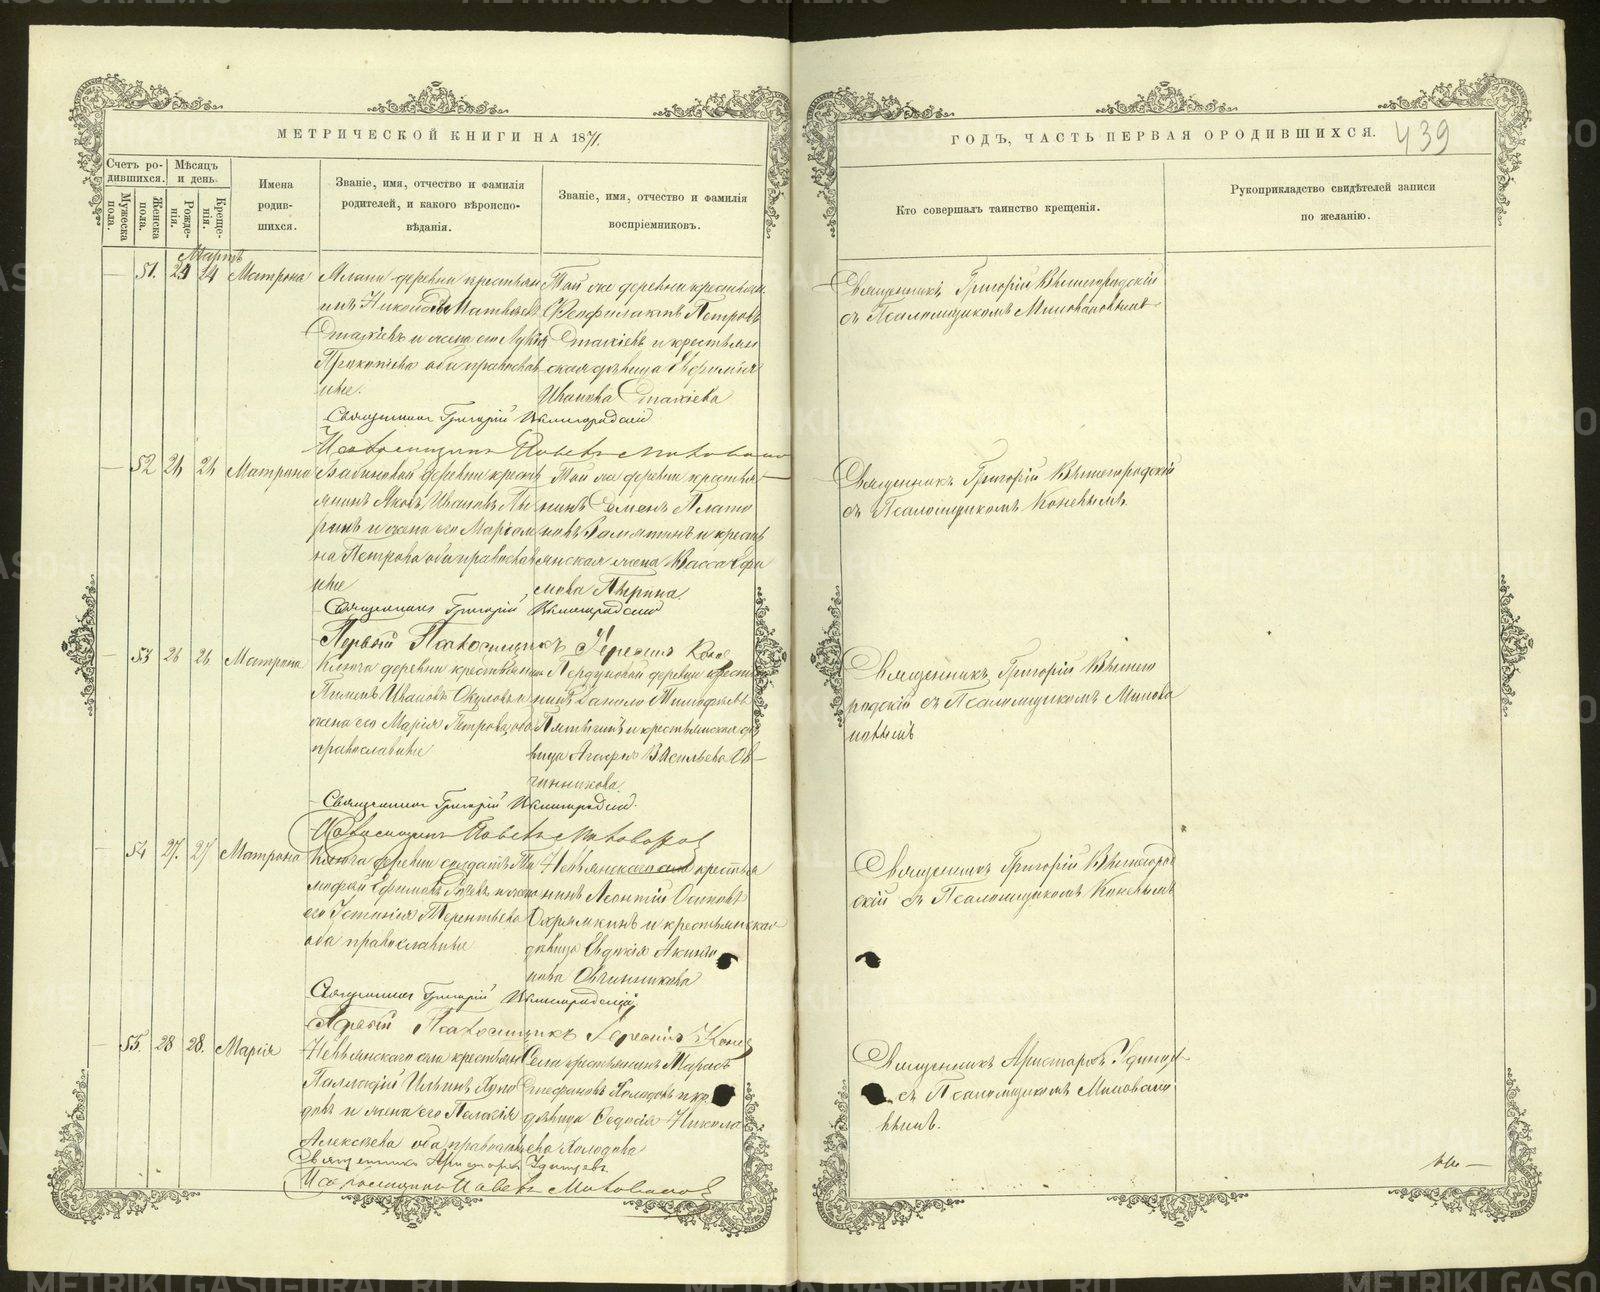 МЕТРИЧЕСКОЙ КНИГИ НА 1871.
ГОДЪ, ЧАСТЬ ПЕРВАЯ ОРОДИВШИХСЯ.
439
Счетъ ро-
дившихся.
Мужеска
пола.
Женска
пола.
Мѣсяцъ
и день.
Рожде-
нія.
Креще-
нія.
Имена
родив-
шихся.
Званіе, имя, отчество и фамилія
родителей, и какого вѣроиспо-
вѣданія.
Званіе, имя, отчество и фамилія
воспріемниковъ.
Кто совершалъ таинство крещенія.
Рукоприкладство свидѣтелей записи
по желанію.
Мартъ
51. 24 24 Матрона
деревни крестьян
инъ Николай Матвѣевъ
и жена его
Прокопіева оба православ
ные.
Той же деревни крестьян
Феофилактъ Петровъ
и крестьян
ская дѣвица Евфимія
Иванова
Священникъ Григорій Вышегородскій
съ Псаломщикомъ Миловановымъ
Священникъ Григорій Вышегородскій
Псаломщикъ Павелъ Миловановъ
52 26 26 Матрона
деревни кресть
янинъ Яковъ Ивановъ Пы
ринъ и жена его Маріам
на Петрова оба православ
ные
Той же деревни крестья
нинъ Семенъ Плато
новъ Замятинъ и кресть
янская жена Васса Ефи
мова Пырина.
Священникъ Григорій Вышегородскій
съ Псаломщикомъ Коневымъ.
Священникъ Григорій Вышегородскій
Первый Псаломщикъ Коневъ
53 26 26 Матрона
Ключа деревни крестьянинъ
Пименъ Ивановъ Окуловъ и
жена его Марія Петрова, оба
православные
деревни кресть
нинъ Данило Тимофеевъ
и крестьянская дѣ
вица Агафья Васильева Ов-
чинникова.
Священникъ Григорій Вышего
родскій съ Псаломщикомъ Милова
новымъ
Священникъ Григорій Вышегородскій.
Псаломщикъ Павелъ Миловановъ
54 27. 27 Матрона
Ключа деревни солдатъ Ти
мофей Ефимовъ и жена
его Устинія Терентьева
оба православные
Невьянскаго села крестья
нинъ Леонтій Осиповъ
Охрямкинъ и крестьянская
дѣвица Евдокія Акинфо
нова Овчинникова
Священникъ Григорій Вышегород
скій съ Псаломщикомъ Коневымъ
Священникъ Григорій Вышегородскій
Первый Псаломщикъ Коневъ
55. 28 28. Марія
Невьянскаго села крестьян
Палладій Ильинъ Холо
довъ и жена его Пелагія
Алексѣева оба православ
Села крестьянинъ
Стефановъ Холодовъ и кр.
дѣвица Федосія Никола
ева Холодова
Священникъ Аристархъ Удинцев
съ Псаломщикомъ Миловано
вымъ.
Священникъ Аристархъ Удинцевъ
Псаломщикъ Павелъ Миловановъ
METRIKI.GASO-URAL.RU